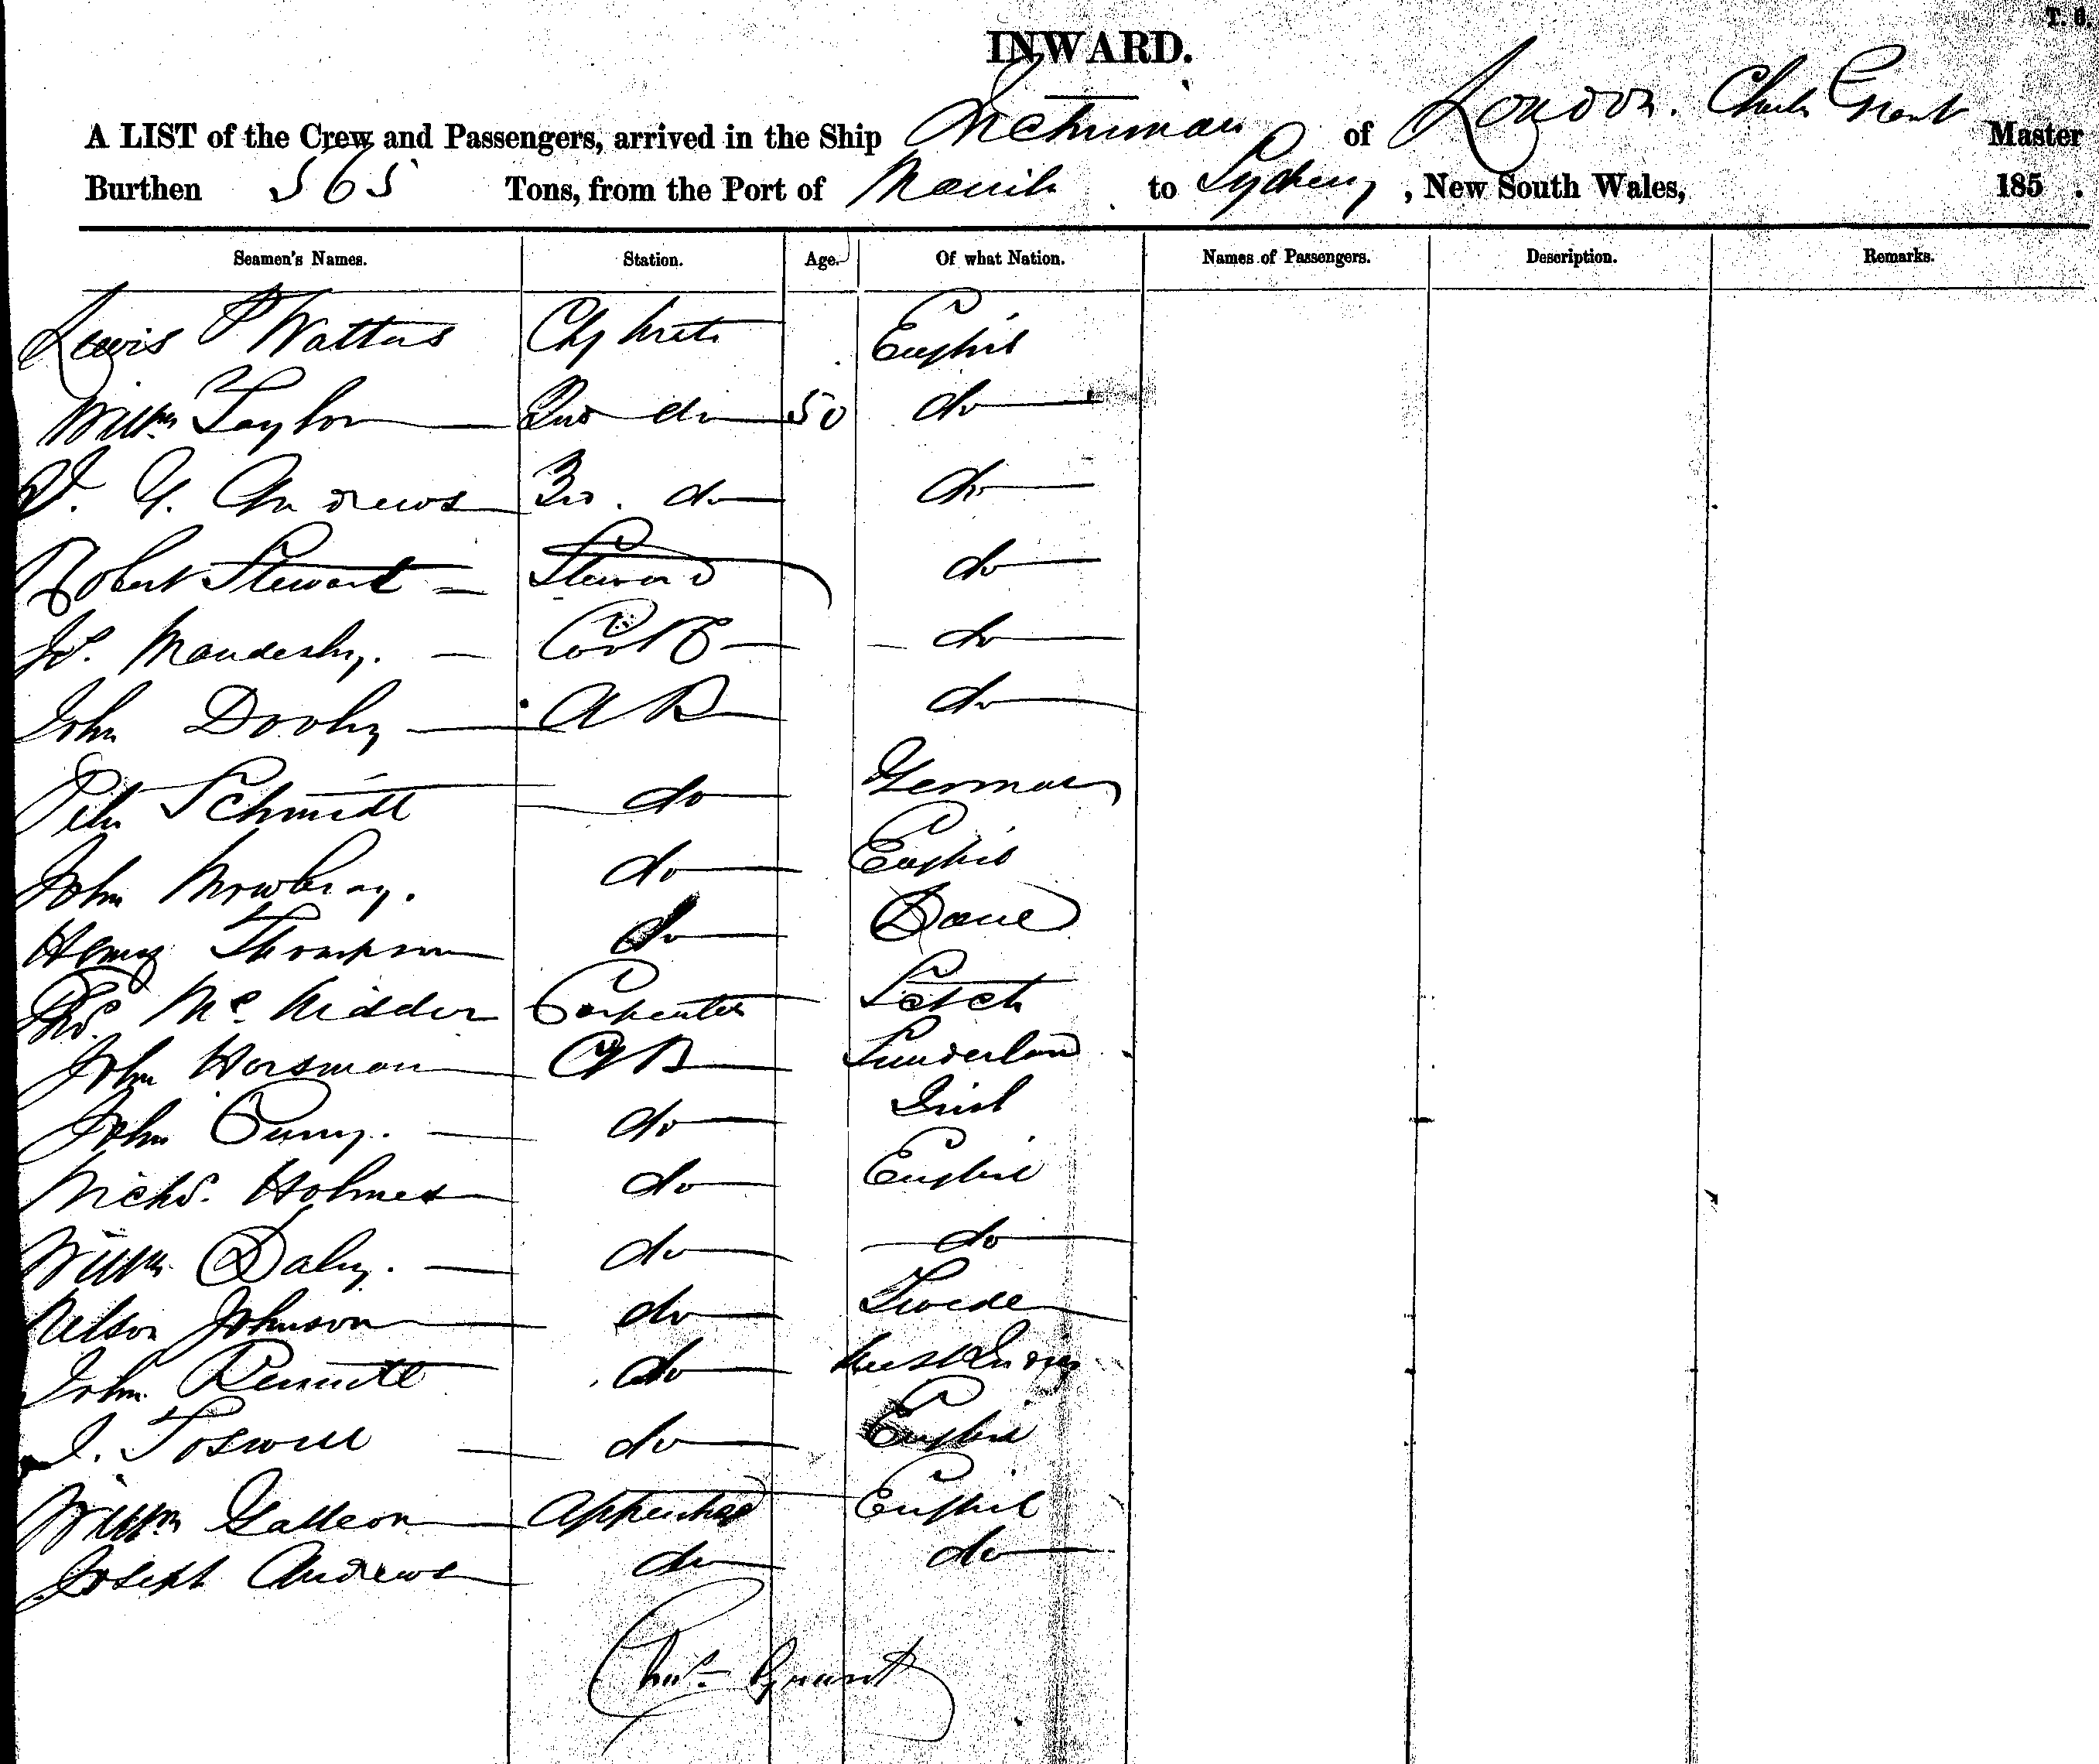 T. 6.
INWARD.
A LIST of the Crew and Passengers, arrived in the Ship of London. Charles Grant Master
Burthen 565 Tons, from the Port of Manila to Sydney, New South Wales, 185 .
Seamen's Names. Station. Age. Of what Nation. Names of Passengers. Description. Remarks.
Lewis P Watters Chf Mate English
Willm Taylor 2nd do 50 do
Andrews 3rd. do do
Robert Stewart Steward do
Cook do
John Dooly AB do
Peter Schmidt do German
John Mowbray. do English
Henry Thompson do Dane
Thos. Mc Carpenter Scotch
John Horsman AB Sunderland
John do Irish
Richd. Holmes do English
Willm Daly. do do
Nelson Johnson do Swede
John do West Indies
J. Toswill do English
Willm Apprentice English
Joseph Andrews do do
Chas. Grant